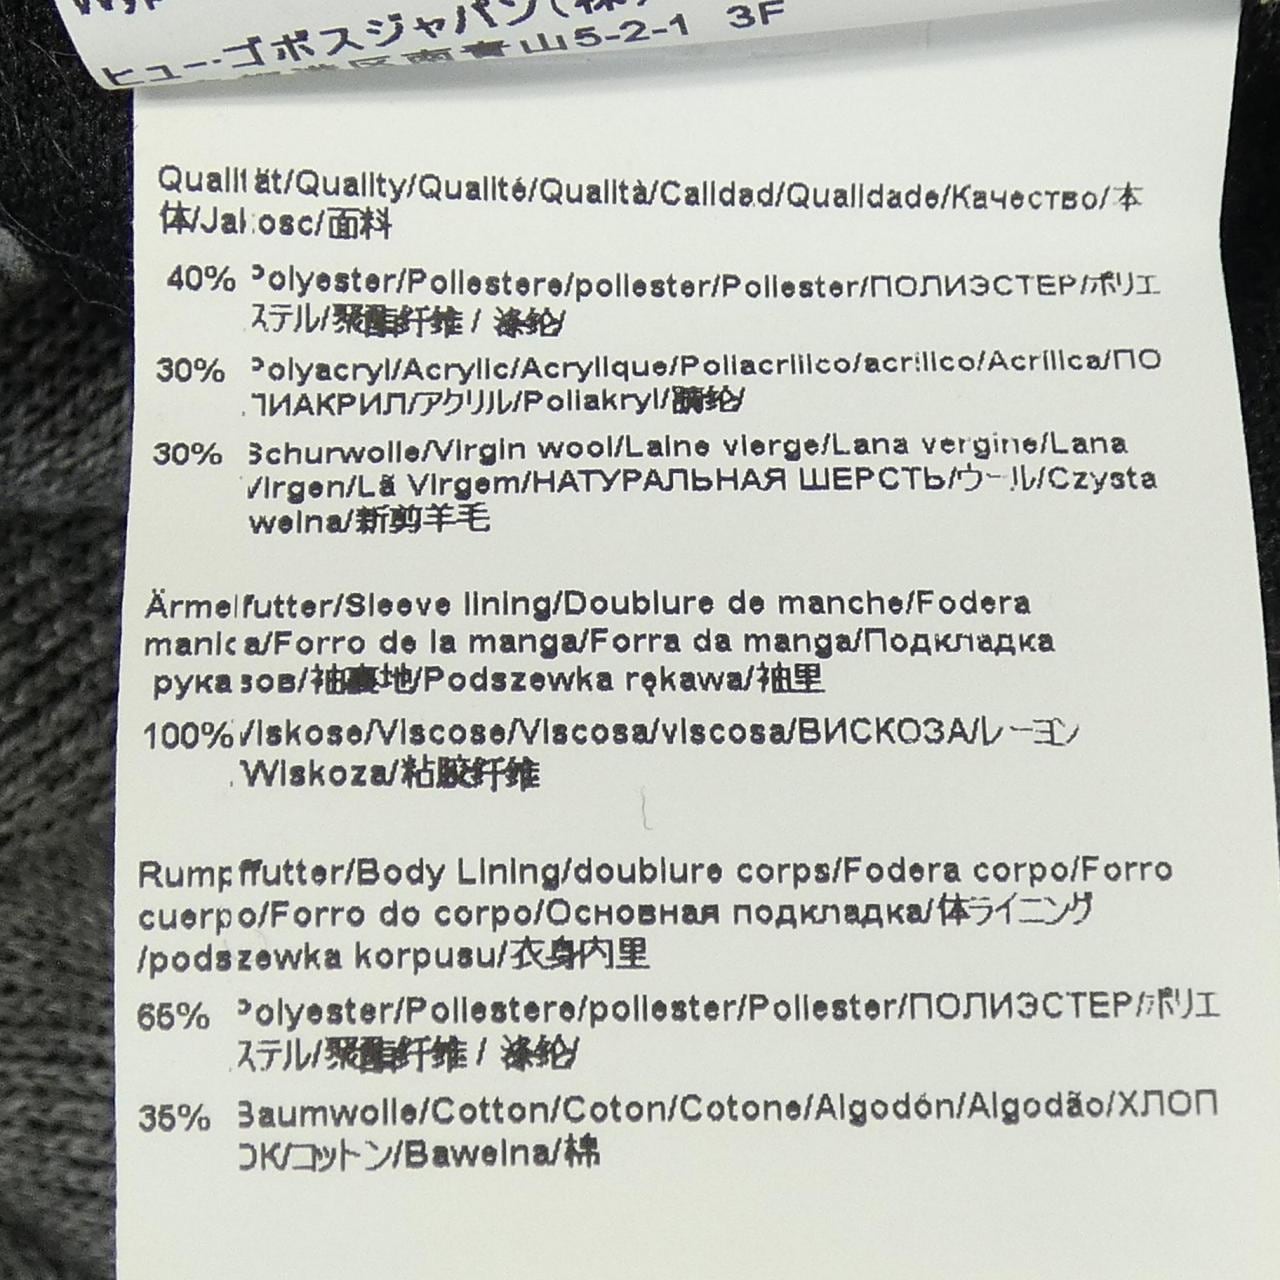 ヒューゴボスジャパン(株)
区南青山5-2-1 3F
Qualität/Quality/Qualité/Qualità/Calidad/Qualidade/Качество/本
体/Jakosc/面料
40% Polyester/Poliestere/poliester/Poliester/ПОЛИЭСТЕР/ポリエ
ステル/聚酯纤维 / 涤纶/
30% Polyacryl/Acrylic/Acrylique/Poliacrilico/acrilico/Acrílica/ПО
ЛИАКРИЛ/アクリル/Poliakryl/腈纶/
30% Schurwolle/Virgin wool/Laine vierge/Lana vergine/Lana
Virgen/Lã Virgem/НАТУРАЛЬНАЯ ШЕРСТЬ/ウール/Czysta
welna/新剪羊毛
Ärmelfutter/Sleeve lining/Doublure de manche/Fodera
manica/Forro de la manga/Forra da manga/Подкладка
рукавов/袖裏地/Podszewka rękawa/袖里
100% Viskose/Viscose/Viscosa/viscosa/ВИСКОЗА/レーヨン
Wiskoza/粘胶纤维
Rumpffutter/Body Lining/doublure corps/Fodera corpo/Forro
cuerpo/Forro do corpo/Основная подкладка/体ライニング
/podszewka korpusu/衣身内里
65% Polyester/Poliestere/poliester/Poliester/ПОЛИЭСТЕР/ポリエ
ステル/聚酯纤维 / 涤纶/
35% Baumwolle/Cotton/Coton/Cotone/Algodón/Algodão/ХЛОП
ОК/コットン/Bawelna/棉